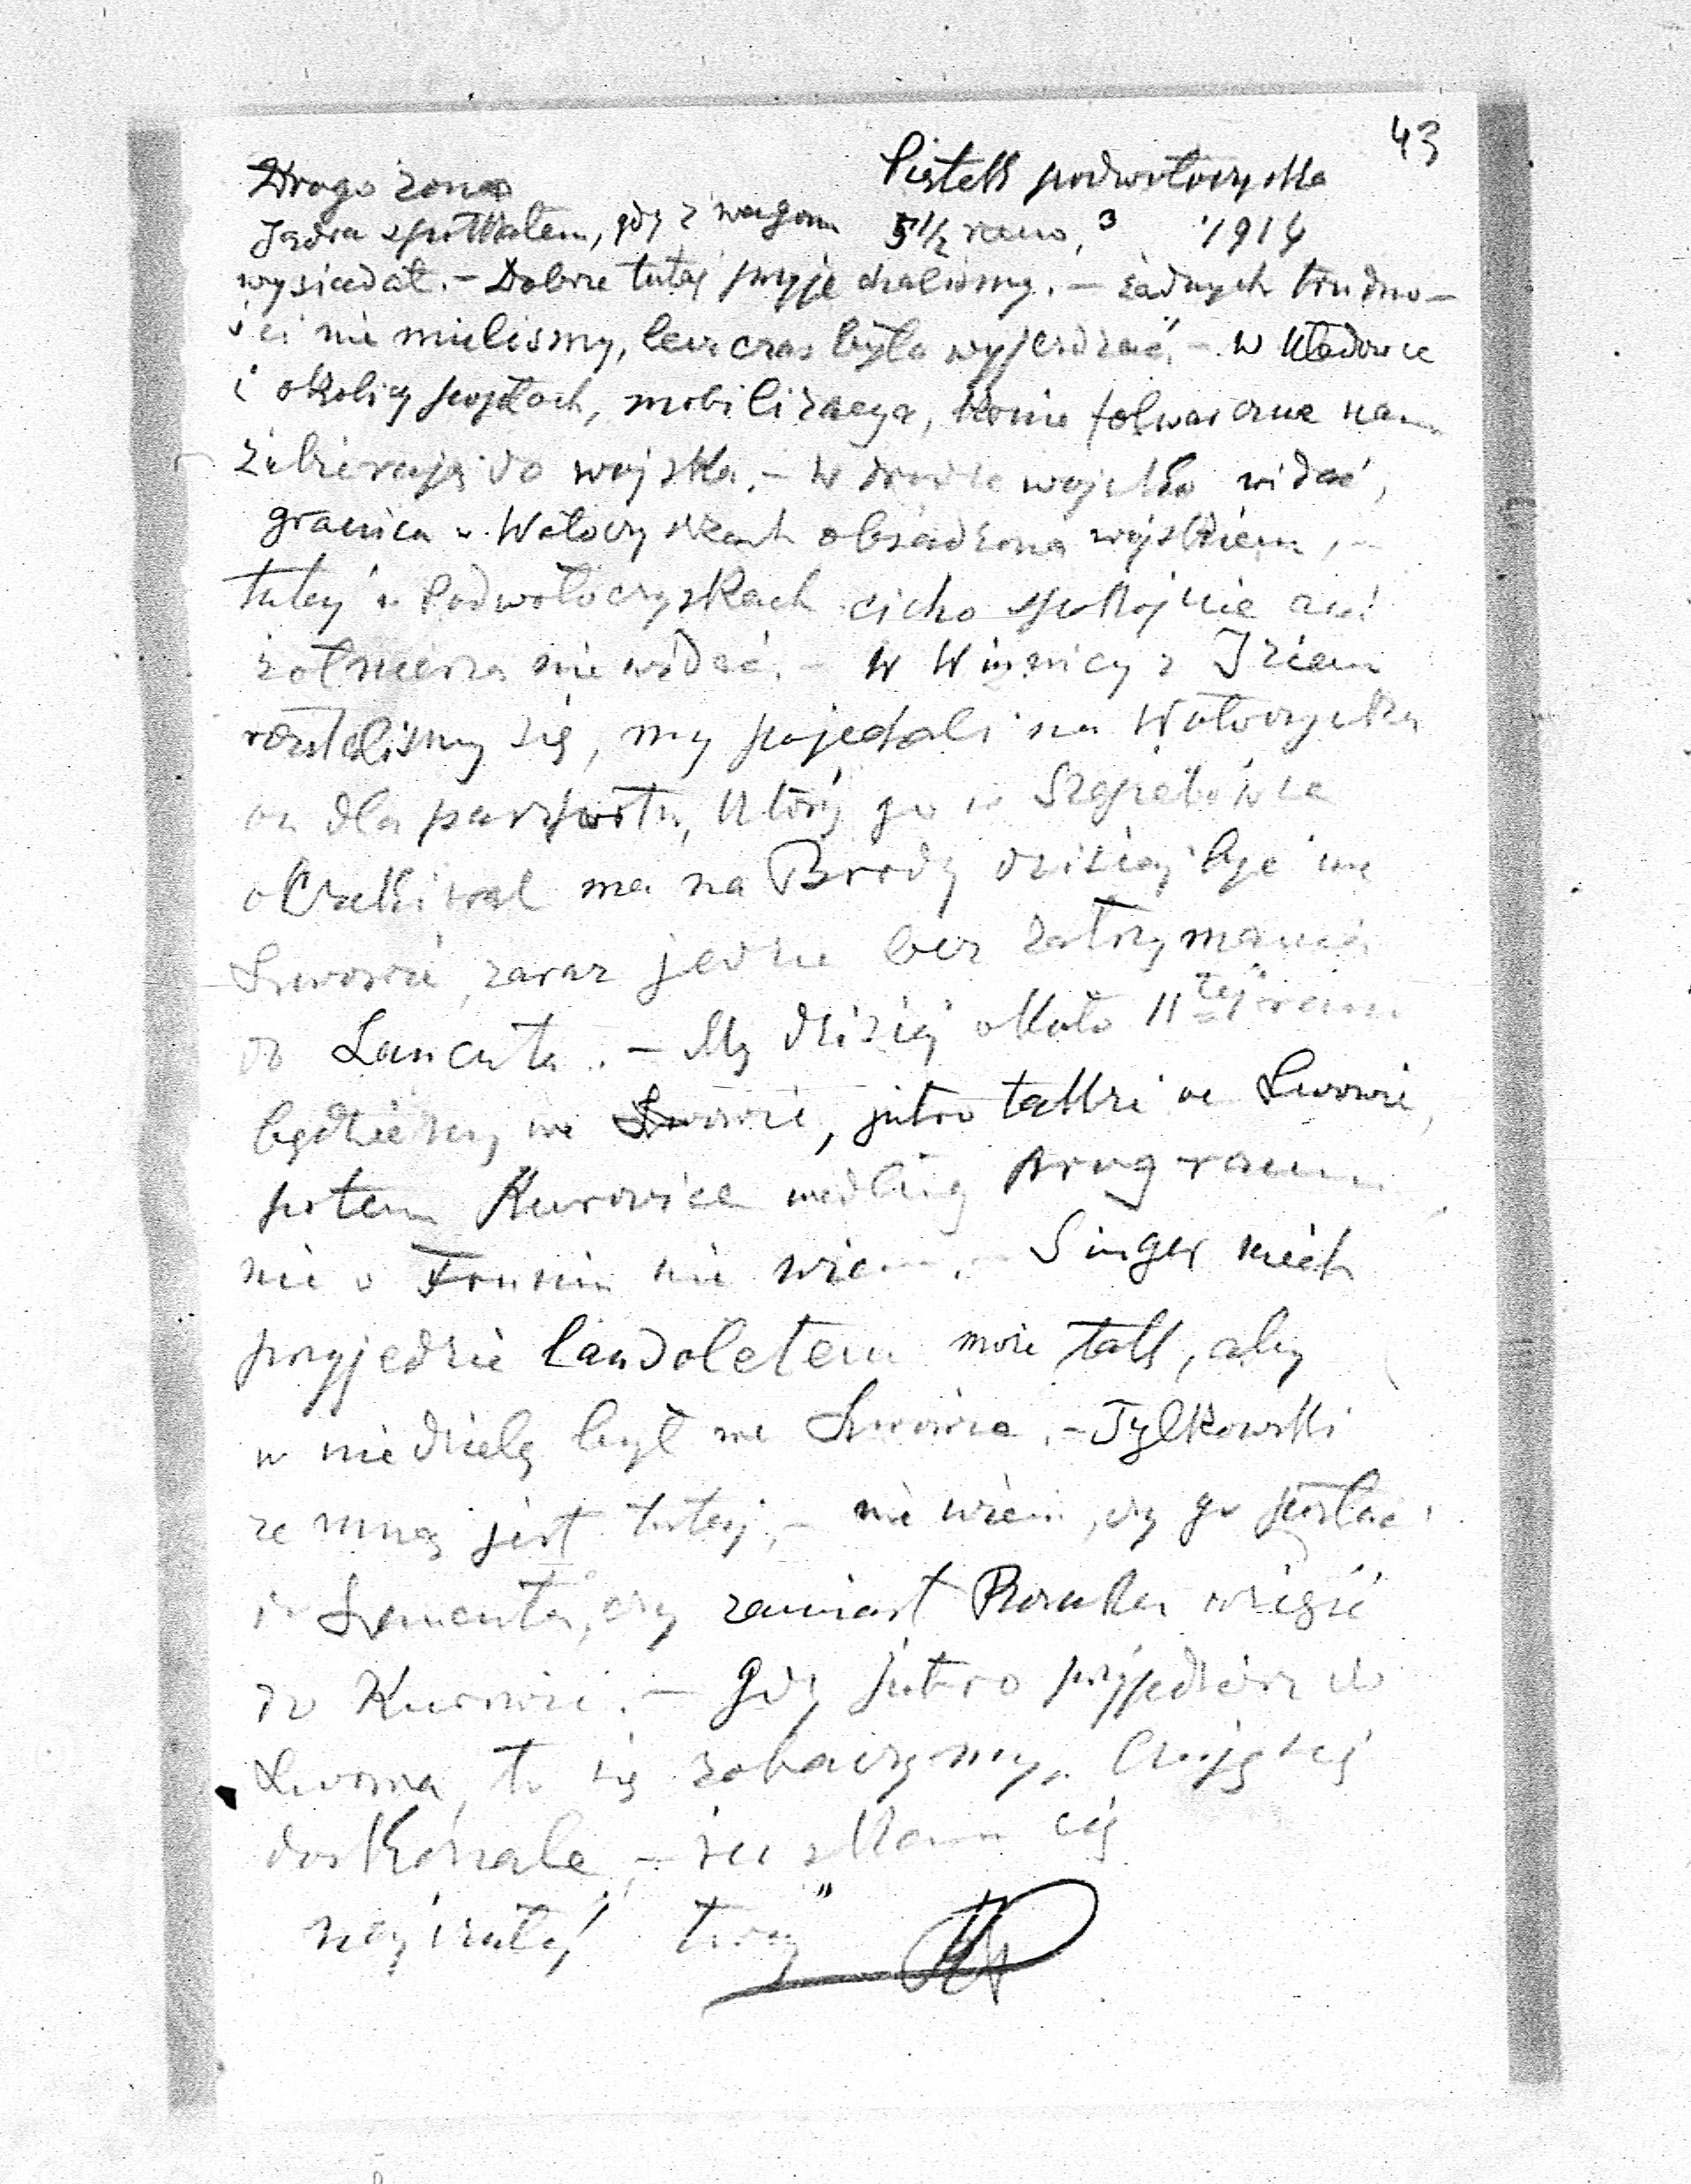 43
Drogo żono Piątek Podwołoczyska
Jędra spotkałem, gdy z wagonu 5 1/2 rano, 3 1914
wysiadał. – Dobrze tutaj przyjechaliśmy. – żadnych trudno–
ści nie mieliśmy, lecz czas było wyjeżdżać. – W
i okolicy popłoch, mobilizacya, konie folwarczne nam
zabierają do wojska. – W drodze wojsko widać,
granica w Wołoczyskach obsadzona wojskiem, –
tutaj w Podwołoczyskach cicho spokojnie ani
żołnierza nie widać. – W Winnicy z Iziem
rozstaliśmy się, my pojechali na Wołoczyska
on dla paszportu, który go w Szepetówce
oczekiwał ma na Brody dzisiaj być we
Lwowie, zaraz jedzie bez zatrzymania
do Łańcuta. – My dzisiaj około 11tej rano
będziemy we Lwowie, jutro także we Lwowie,
potem Kurowice według programu
nic o nie wiem. – Singer niech
przyjedzie landoletem może tak, aby
w niedzielę był we Lwowie. – Tylkowski
ze mną jest tutaj, – nie wiem, czy go posłać
do Łańcuta, czy zamiast wziąść
do Kurowic. – Gdy jutro przyjedziesz do
Lwowa, to się zobaczymy. Czuję się
doskonale, – ściskam cię
twój